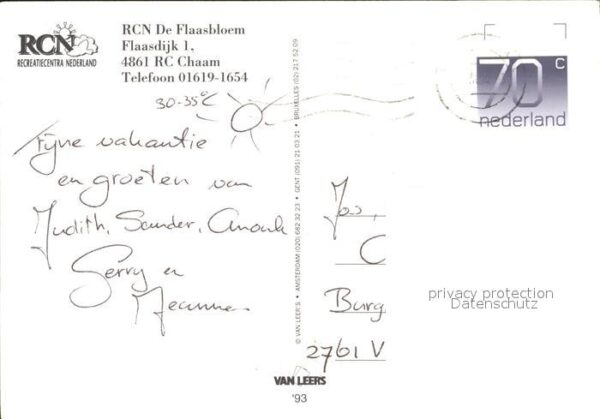 RCN
RECREATIECENTRA NEDERLAND
RCN De Flaasbloem
Flaasdijk 1,
4861 RC Chaam
Telefoon 01619-1654
30-35°C
Fijne vakantie
en groeten van
Judith, Sander, Anouk
Gerry en
Jeanne
© VAN LEER'S • AMSTERDAM (020) 682 32 23 • GENT (091) 21 03 21 • BRUXELLES (02) 217 52 09
VAN LEERS
'93
70 c
nederland
C
Burg
2761 V
privacy protection
Datenschutz